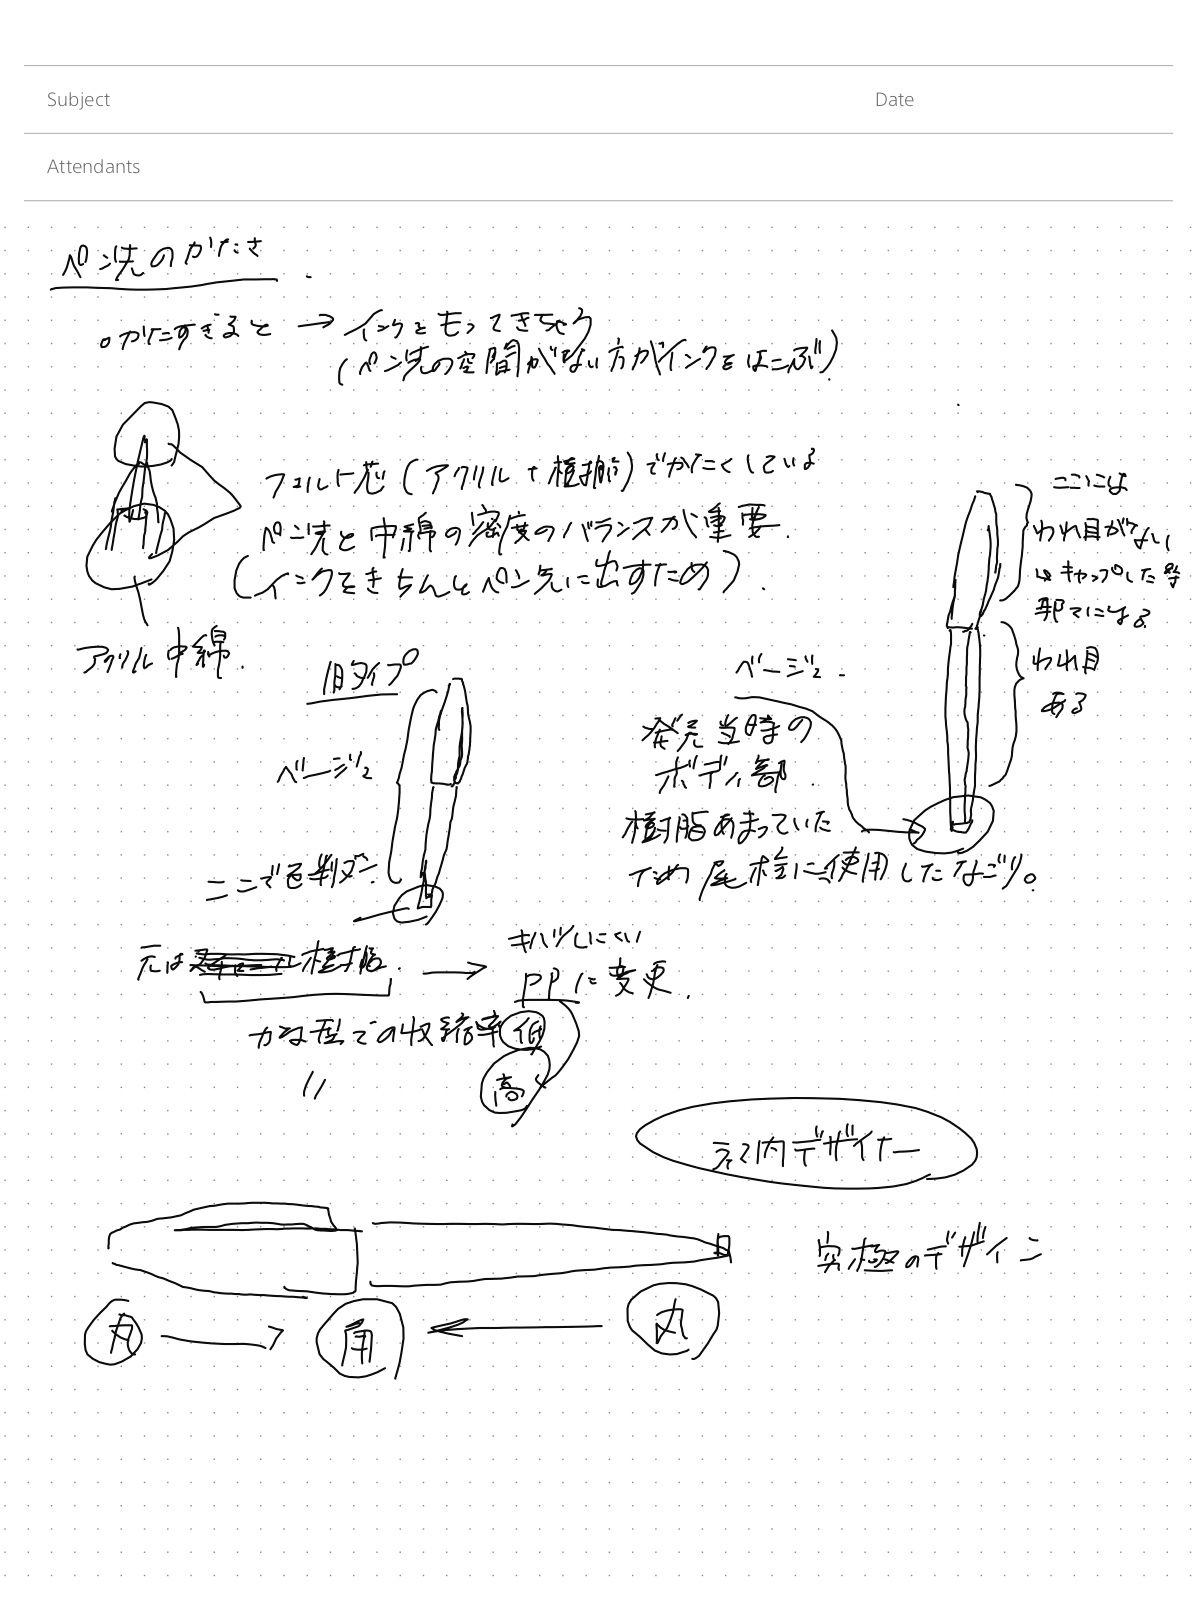 Subject
Date
Attendants
ペン先のかたさ
○かたすぎると → インクをもってきちゃう
(ペン先の空間がない方がインクをはこぶ)
フェルト芯(アクリル+樹脂)でかたくしている
ペン先と中綿の密度のバランスが重要.
(インクをきちんとペン先に出すため).
アクリル中綿.
ここには
われ目がない
キャップした時
われ目
ある
旧タイプ
ベージュ
ここで色判ダン.
ベージュ.
発売当時の
ボディ部.
樹脂あまっていた
ため尾栓に使用したなごり。
元は 樹脂. →
キハツしにくい
PPに変更.
かな型での収縮率 低
〃 高
社内デザイナー
究極のデザイン
丸 → 角 ← 丸